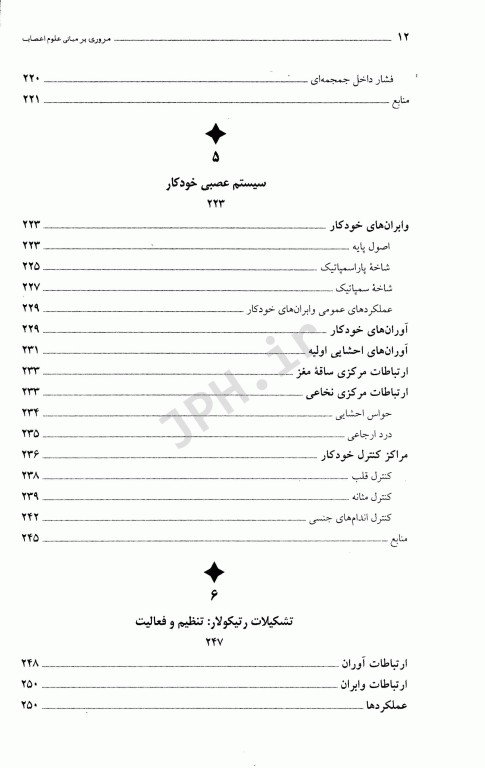 ۱۲ مروری بر مبانی علوم اعصاب
فشار داخل جمجمه‌ای ۲۲۰
منابع ۲۲۱
۵
سیستم عصبی خودکار
۲۲۳
وابران‌های خودکار ۲۲۳
اصول پایه ۲۲۳
شاخهٔ پاراسمپاتیک ۲۲۵
شاخهٔ سمپاتیک ۲۲۷
عملکردهای عمومی وابران‌های خودکار ۲۲۹
آوران‌های خودکار ۲۲۹
آوران‌های احشایی اولیه ۲۳۱
ارتباطات مرکزی ساقهٔ مغز ۲۳۳
ارتباطات مرکزی نخاعی ۲۳۳
حواس احشایی ۲۳۴
درد ارجاعی ۲۳۵
مراکز کنترل خودکار ۲۳۶
کنترل قلب ۲۳۸
کنترل مثانه ۲۳۹
کنترل اندام‌های جنسی ۲۴۲
منابع ۲۴۵
۶
تشکیلات رتیکولار: تنظیم و فعالیت
۲۴۷
ارتباطات آوران ۲۴۸
ارتباطات وابران ۲۵۰
عملکردها ۲۵۰
JPH.ir